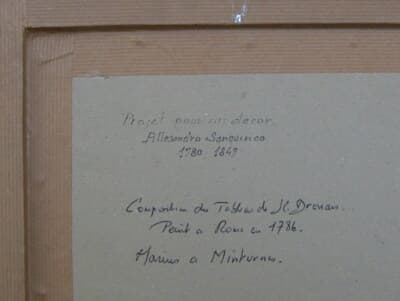 Projet pour un decor
Allesandro Sanquirico
1780 1849
Composition du Tableau de JG. Drouais.
Peint a Rome en 1786.
Marius a Minturnes.